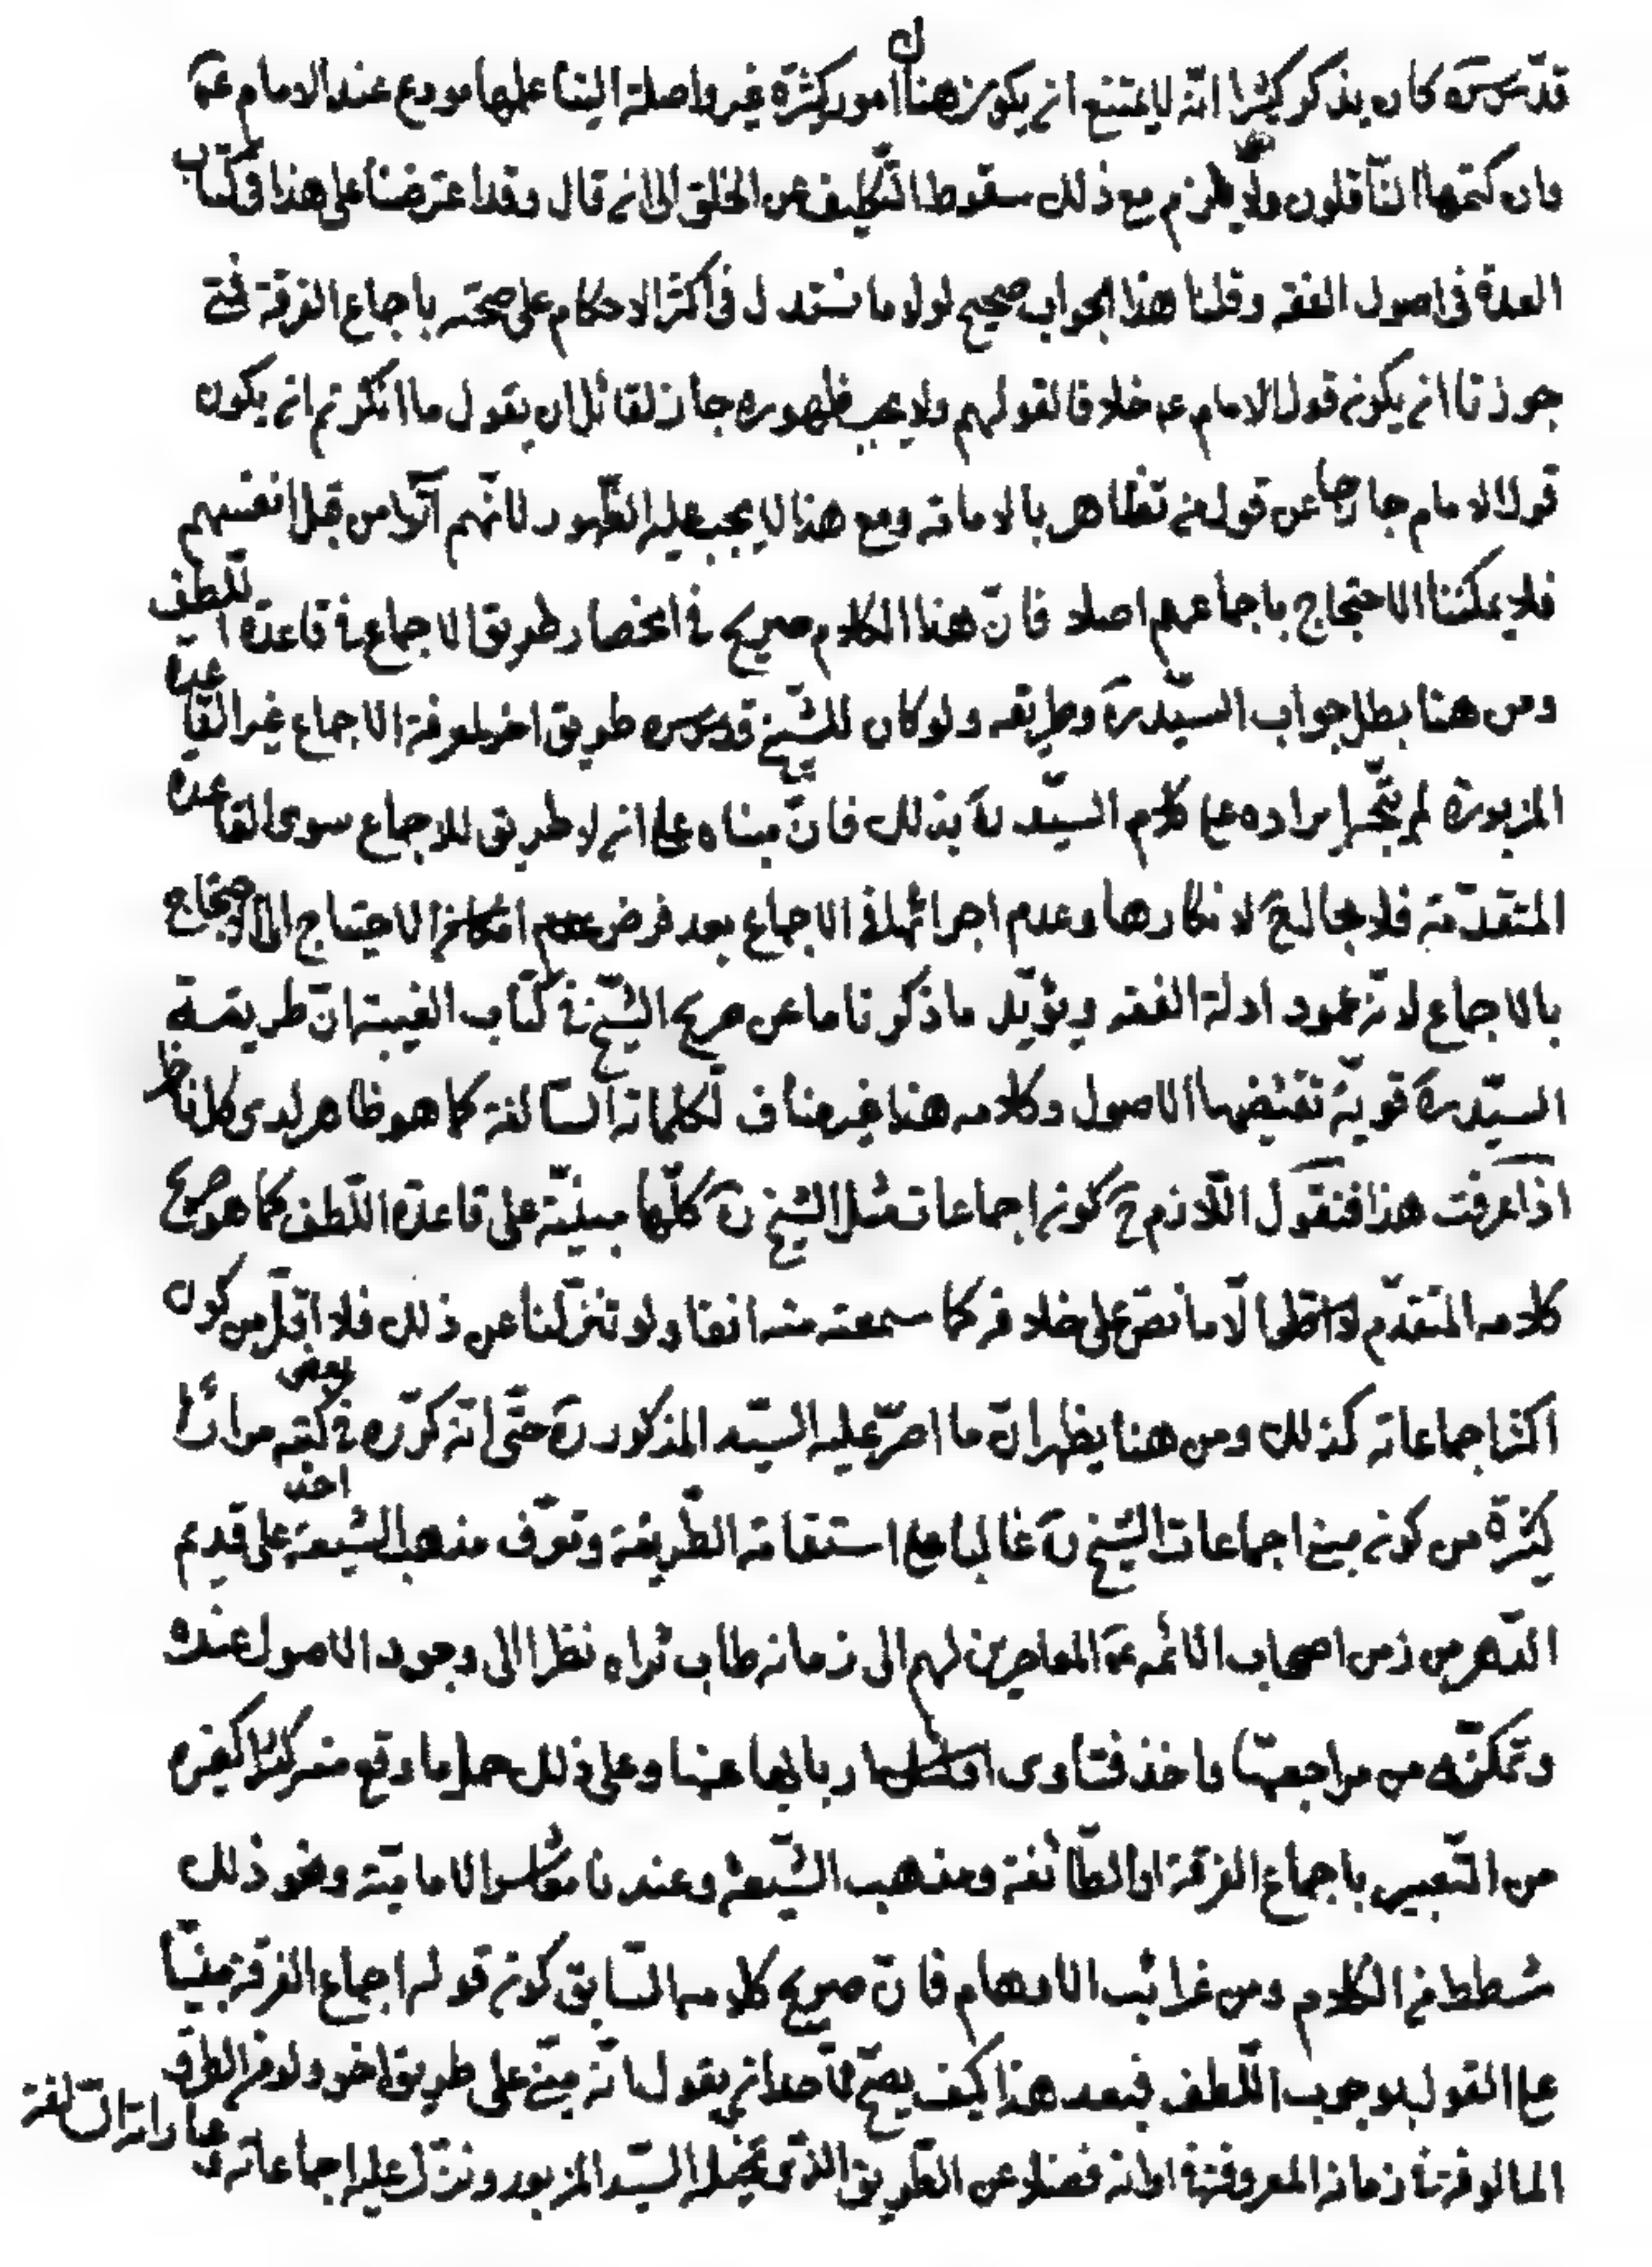 قدّس سرّه كان يذكر كثيرا انّه لا يمتنع ان يكون هنا امور كثيرة غير واصلة الينا علمها مودع عند الامام عم
وان كتمها الناقلون ولا يلزم مع ذلك سقوط التّكليف عن الخلق الى ان قال وقد اعترضنا على هذا في كتاب
العدة في اصول الفقه وقلنا هذا الجواب صحيح لولا ما نستدل في اكثر الاحكام على صحته باجماع الفرقة فمتى
جوزنا ان يكون قول الامام عم خلافا لقولهم ولا يجب ظهوره جاز لقائل ان يقول ما انكرتم ان يكون
قول الامام خارجا عن قول من تظاهر بالامامة ومع هذا لا يجب عليه الظّهور لانّهم اتوا من قبل انفسهم
فلا يمكننا الاحتجاج باجماعهم اصلا فانّ هذا الكلام صريح في انحصار طريق الاجماع في قاعدة اللّطف
ومن هنا بطل جواب السيّد ره وطريقه ولو كان للشّيخ قدس سره طريق اخر لمعرفة الاجماع غير القاعدة
المزبورة لم يتّجه ايراده على كلام السيّد ره بذلك فانّ مبناه على انه لا طريق للاجماع سوى القاعدة
المتقدّمة فلا مجال لانكارها وعدم اجرائها في الاجماع بعد فرض الاحتياج الى الاحتجاج
بالاجماع لانه عمود ادلة الفقه ويؤيّد ما ذكرنا ما عن صريح الشّيخ في كتاب الغيبة انّ طريقة
السيّد ره قويّة تقتضيها الاصول وكلامه هنا غير مناف لكلماته السّالفة كما هو ظاهر لدى كل ناظر
اذا عرفت هذا فنقول اللّازم ح كون اجماعات مثل الشيخ ره كلّها مبنيّة على قاعدة اللّطف كما هو صريح
كلامه المتقدّم الّا ما نصّ على خلافه كما سمعته منه انفا ولو تنزّلنا عن ذلك فلا اقلّ من كون
اكثر اجماعاته كذلك ومن هنا يظهر انّ ما اصرّ عليه السيّد المذكور ره حتّى انّه كرّره في بعض كتبه مرارا
كثيرة من كون مبنى اجماعات الشّيخ ره غالبا مع استقامة الطّريقة وتعرّف مذهب الشّيعة اخذ على قديم
الدّهر من زمن اصحاب الائمه عم المعاصرين لهم الى زمانه طاب ثراه نظرا الى وجود الاصول عنده
وتمكّنه من مراجعتها واخذ فتاوى اربابها عنها وعلى ذلك حمل ما وقع منه كثيرا كغيره
من التّعبير باجماع الفرقة او الطّائفة ومذهب الشّيعة وعندنا معاشر الاماميّة ونحو ذلك
شطط من الكلام ومن غرائب الاوهام فانّ صريح كلامه السّابق كون قوله اجماع الفرقة مبنيّا
على القول بوجوب اللّطف فبعد هذا كيف يصحّ لاحد ان يقول انّه مبنى على طريق اخر ولو من الطرق
المالوفة في زمانه المعروفة في اوانه فضلا عن الطّريق الذّى تخيّله السّيد المزبور ونزّل عليه اجماعاته وعباراته السّالفة